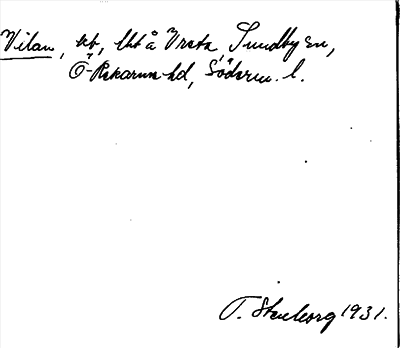 Vilan, bb, lht å Vreta, Sundby sn,
Ö-Rekarne hd, Söderm. l.
T. Stenborg 1931.